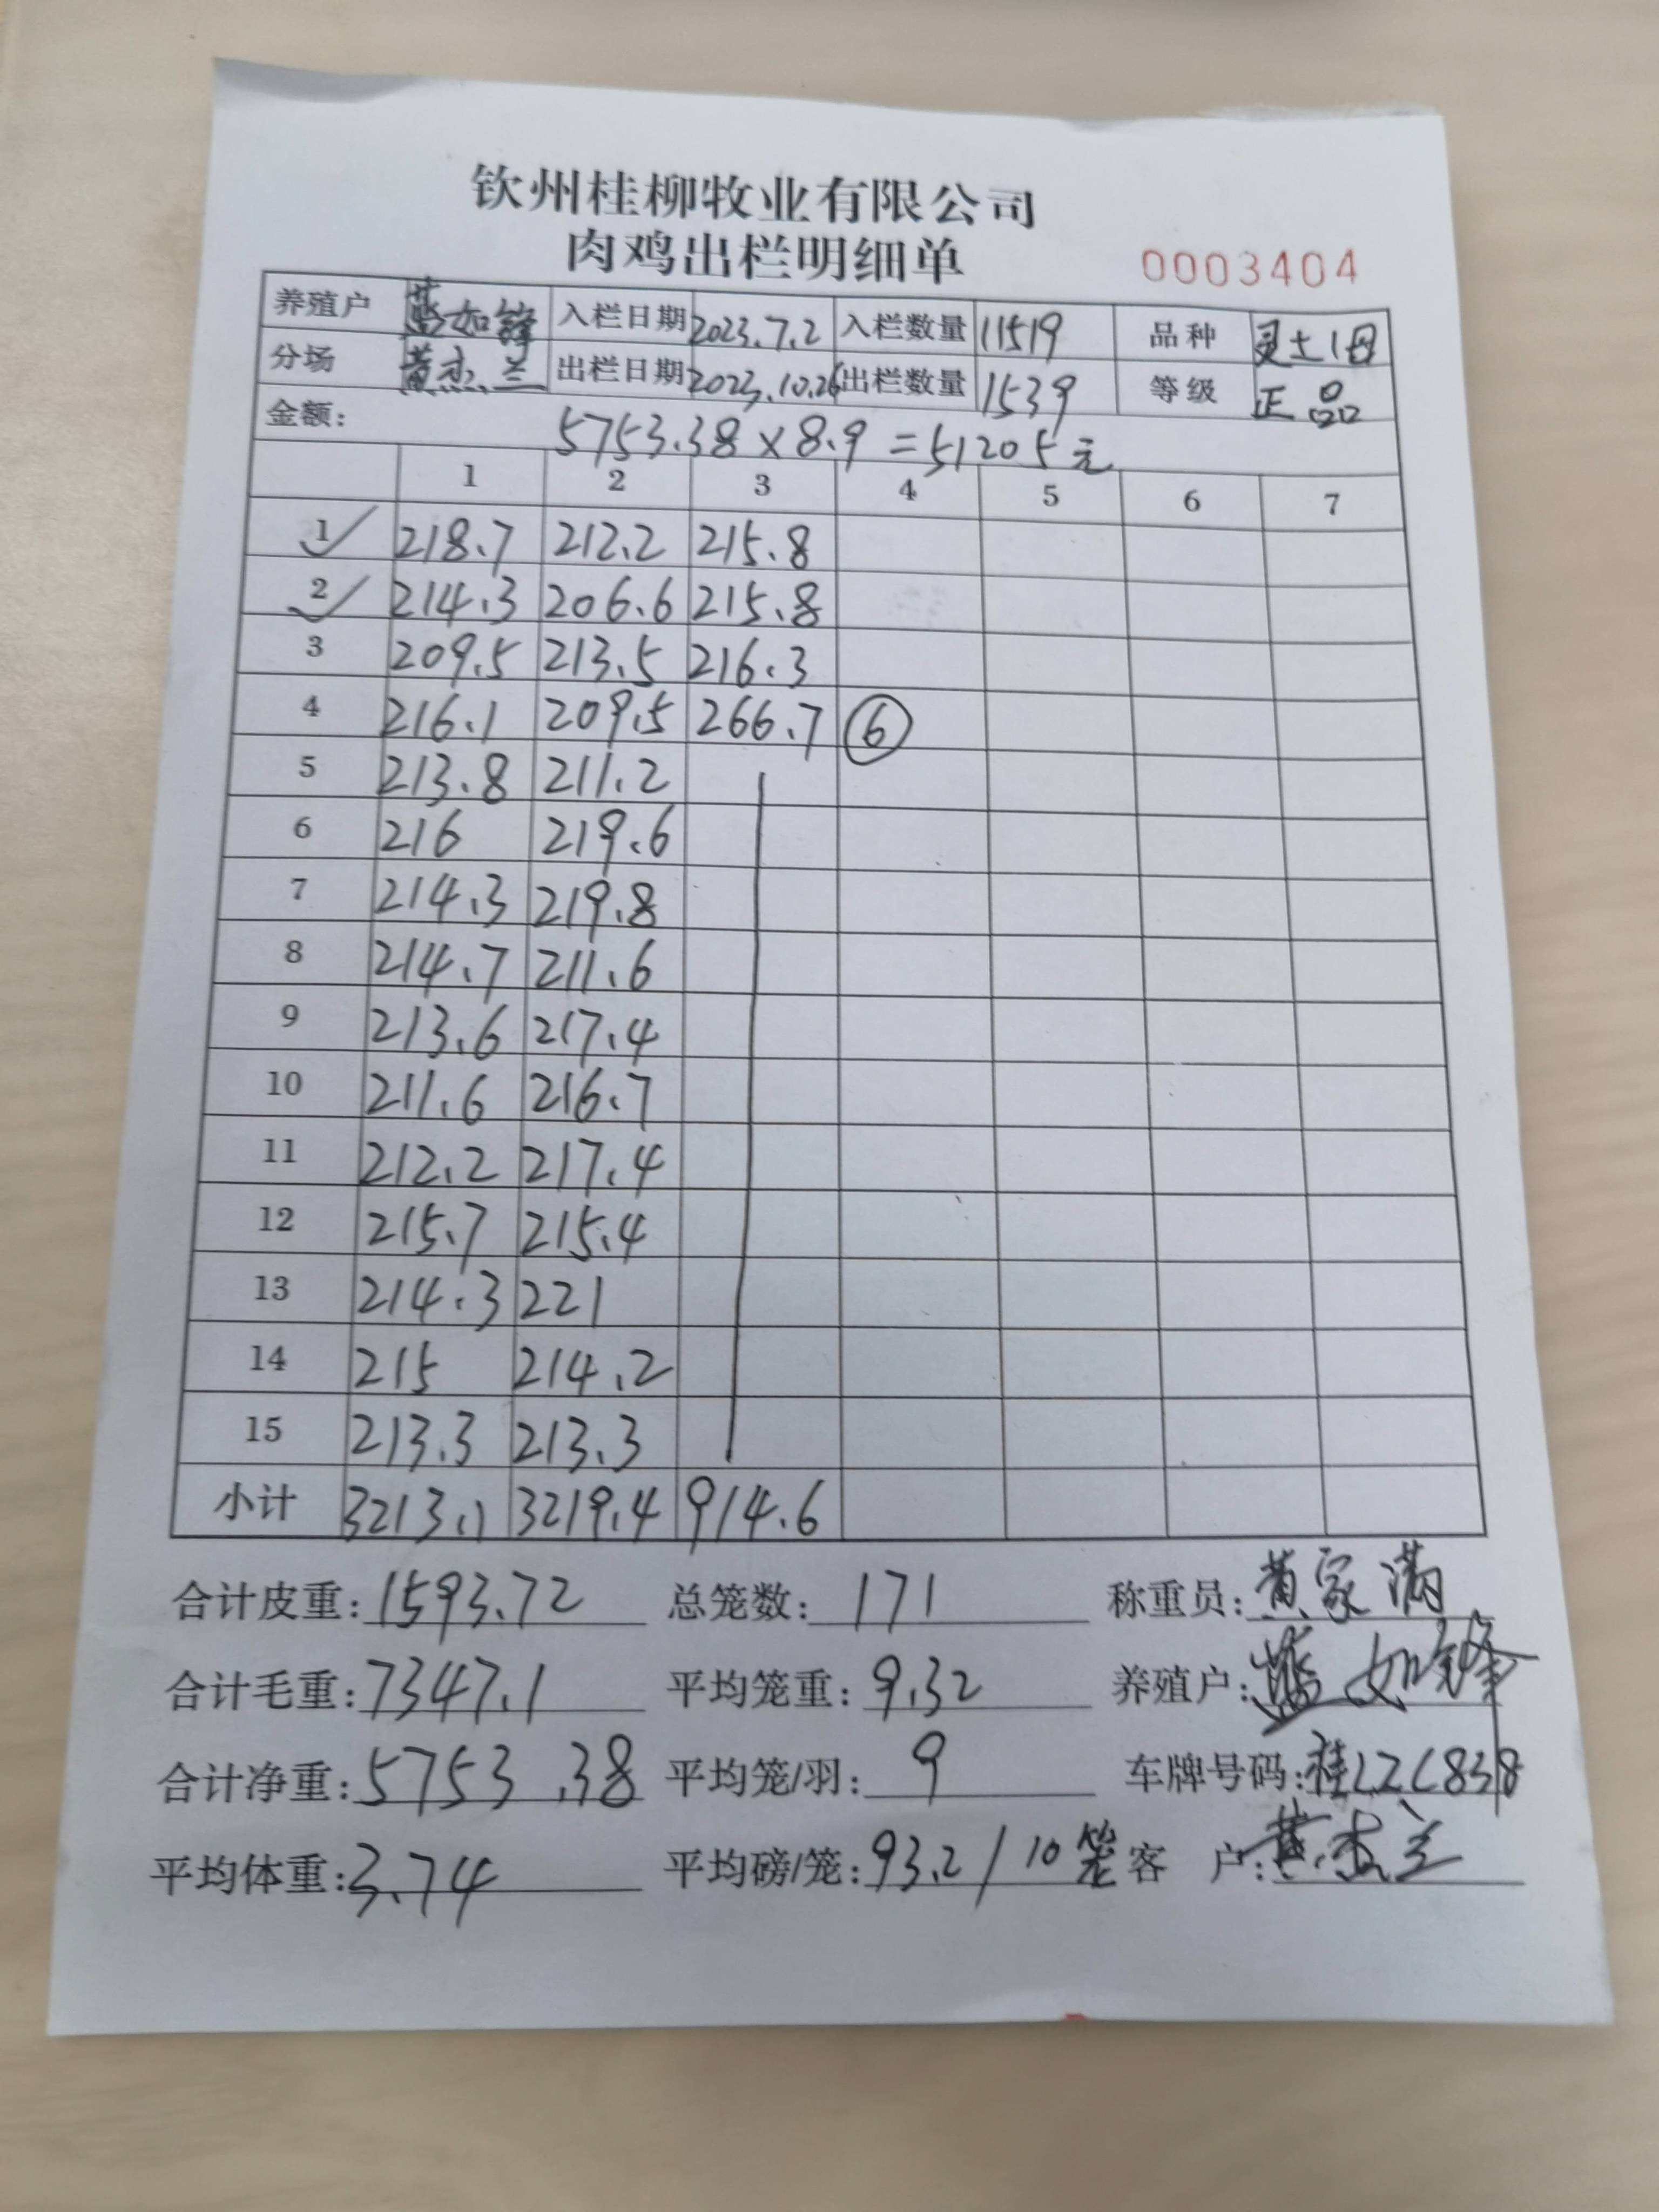 钦州桂柳牧业有限公司
肉鸡出栏明细单 0003404
养殖户 蓝如锋 入栏日期 2023.7.2 入栏数量 11519 品种 灵土1母
分场 黄杰兰 出栏日期 2023.10.26 出栏数量 1539 等级 正品
金额: 5753.38×8.9=51205元
1 2 3 4 5 6 7
1 218.7 212.2 215.8
2 214.3 206.6 215.8
3 209.5 213.5 216.3
4 216.1 209.5 266.7 ⑥
5 213.8 211.2
6 216 219.6
7 214.3 219.8
8 214.7 211.6
9 213.6 217.4
10 211.6 216.7
11 212.2 217.4
12 215.7 215.4
13 214.3 221
14 215 214.2
15 213.3 213.3
小计 3213.1 3219.4 914.6
合计皮重: 1593.72 总笼数: 171 称重员: 黄家满
合计毛重: 7347.1 平均笼重: 9.32 养殖户: 蓝如锋
合计净重: 5753.38 平均笼/羽: 9 车牌号码:
平均体重: 3.74 平均磅/笼: 93.2/10笼 客户: 黄杰兰